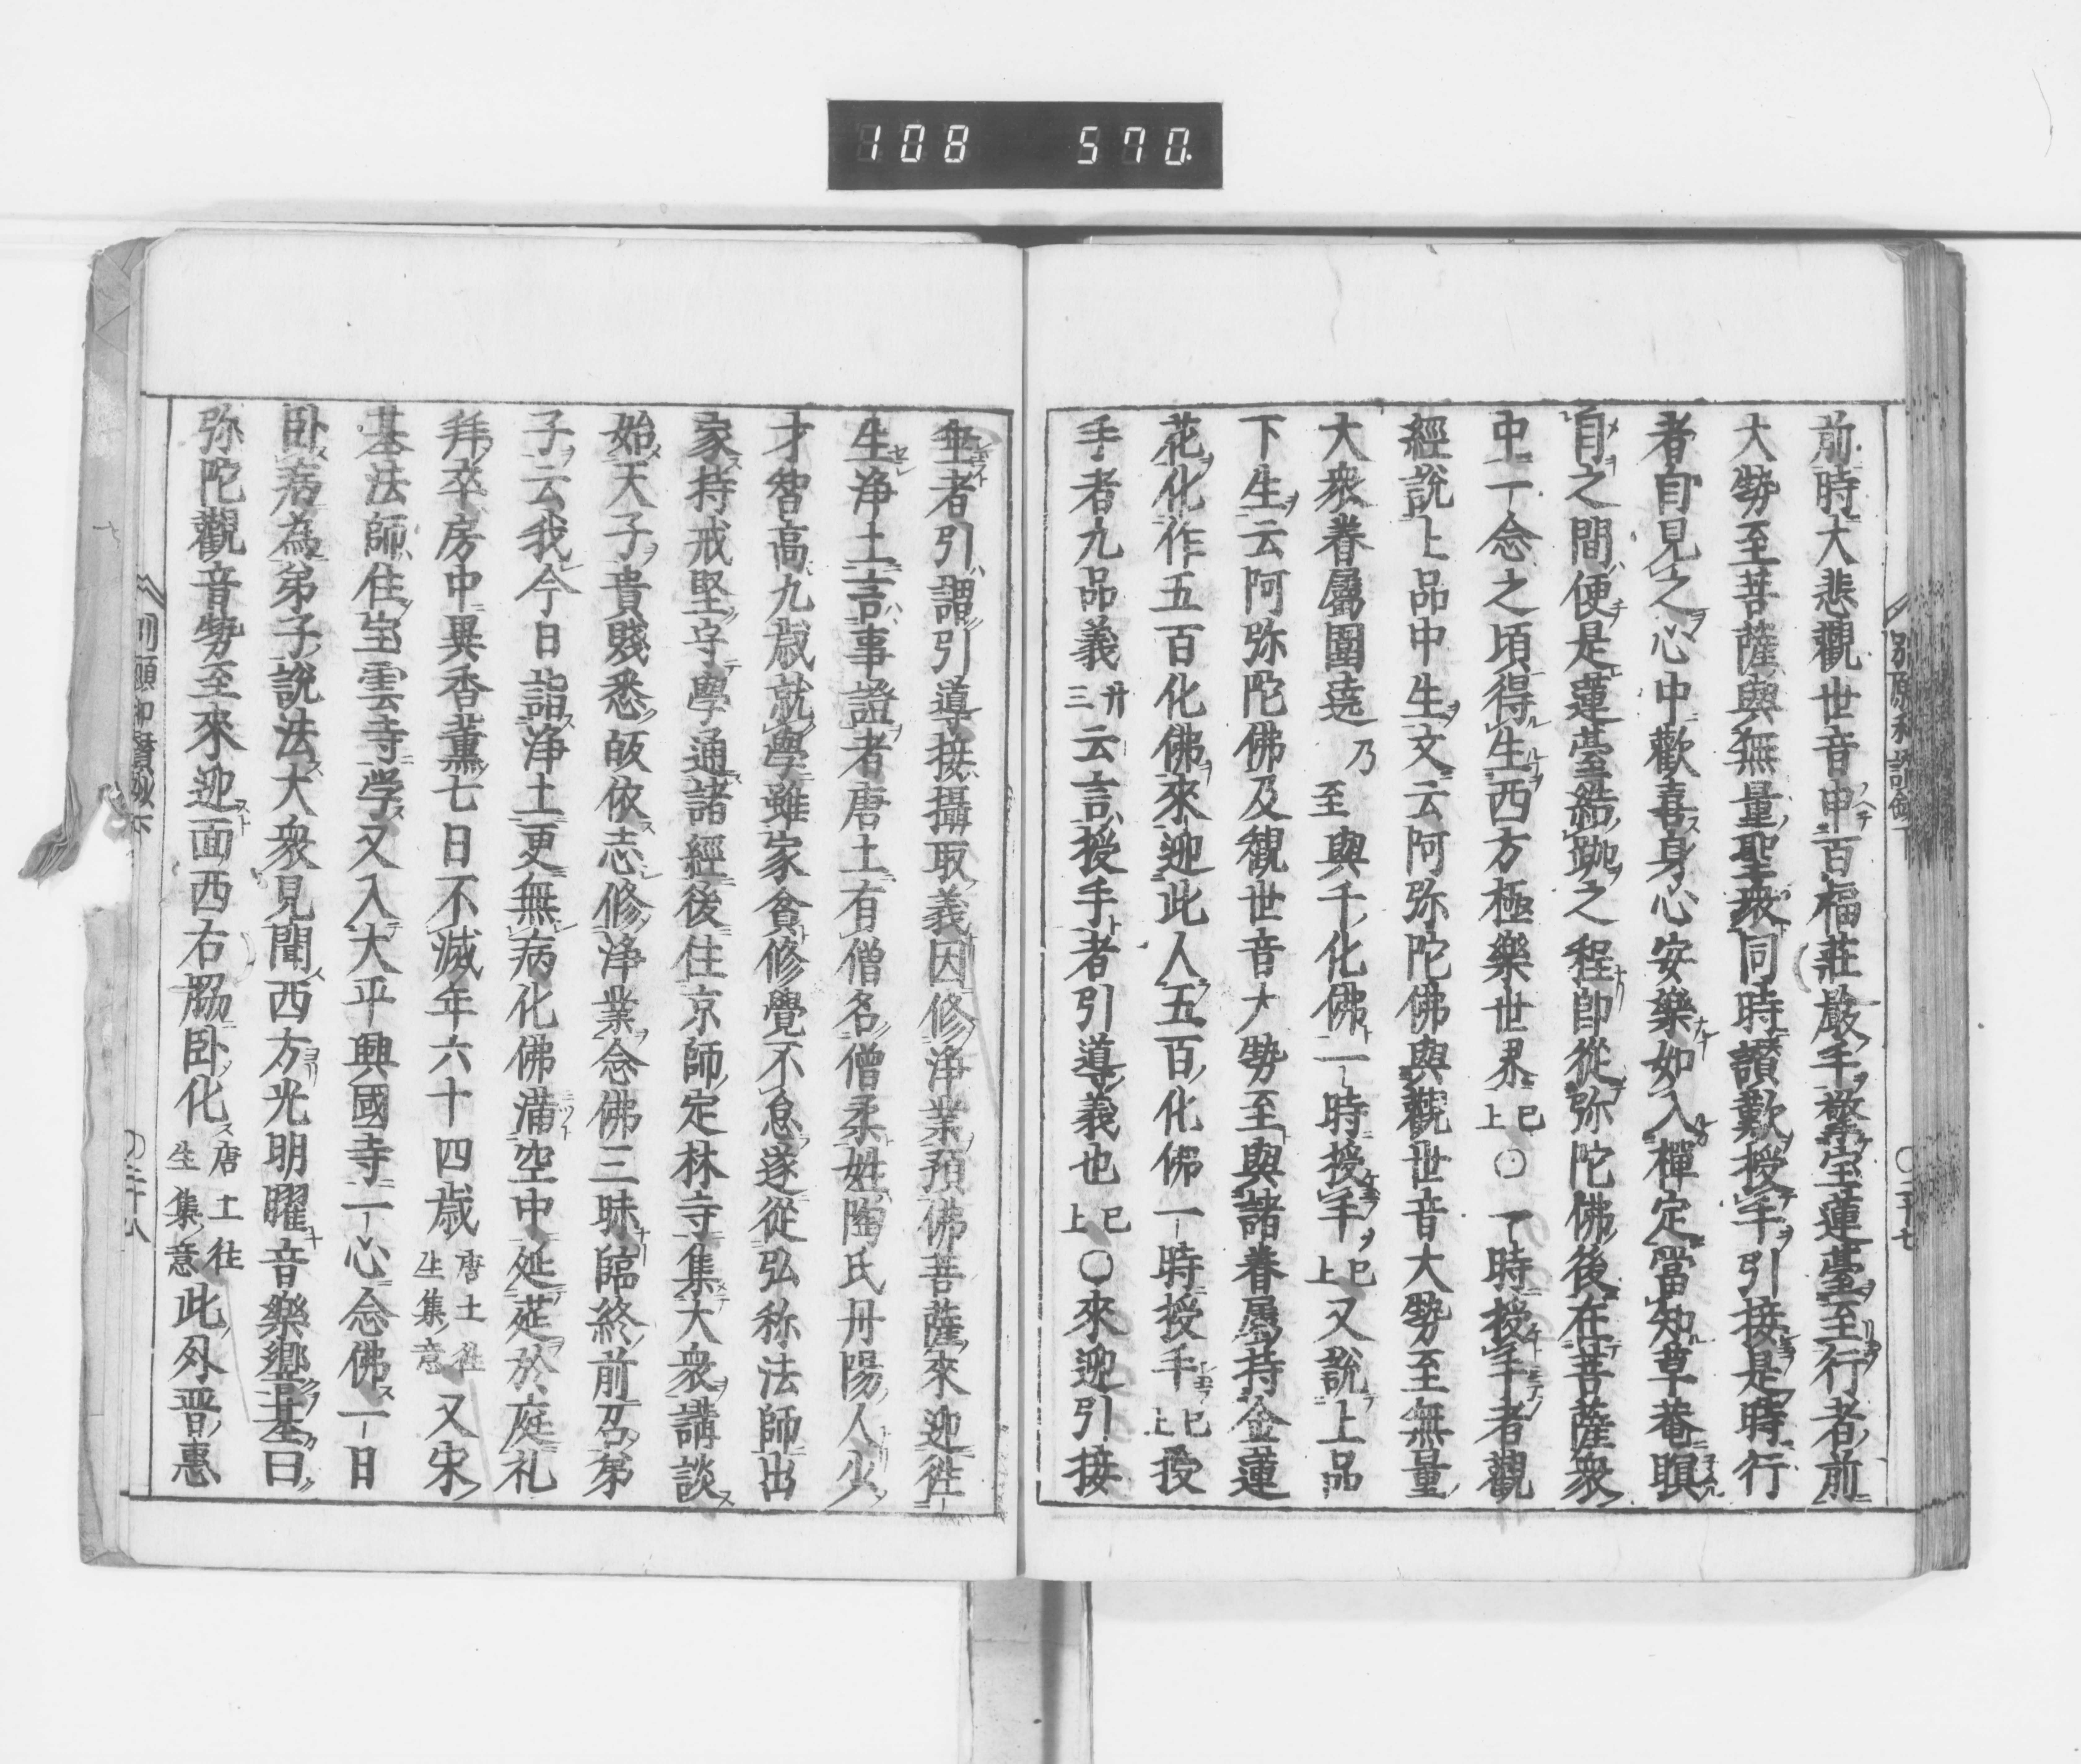 108 570
前時大悲觀世音申百福莊嚴手擎宝蓮臺至行者前
大勢至菩薩與無量聖衆同時讃歎授手引接是時行
者自見之心中歡喜身心安樂如入禪定當知草菴瞑
目之間便是蓮臺結跏之程即從弥陀佛後在菩薩衆
中一念之頃得生西方極樂世界已上○一時授手者觀
經説上品中生文云阿弥陀佛與觀世音大勢至無量
大衆眷屬圍遶乃至與千化佛一時授手已上又説上品
下生云阿弥陀佛及觀世音大勢至與諸眷屬持金蓮
花化作五百化佛來迎此人五百化佛一時授手已上授
手者九品義卅三云言授手者引導義也已上○來迎引接
至者引謂引導接攝取義因修浄業預佛菩薩來迎往
生浄土言事證者唐土有僧名僧柔姓陶氏丹陽人少
才智高九歳就學雖家貧修覺不怠遂從弘称法師出
家持戒堅守學通諸經後住京師定林寺集大衆講談
始天子貴賤悉皈依志修浄業念佛三昧臨終前召弟
子云我今日詣浄土更無病化佛滿空中延莚於庭礼
拜卒房中異香薫七日不滅年六十四歳唐土往生集意又宋
基法師住宝雲寺学又入大平興國寺一心念佛一日
卧病為弟子説法大衆見聞西方光明曜音樂響基曰
弥陀觀音勢至來迎面西右脇卧化唐土往生集意此外晋惠